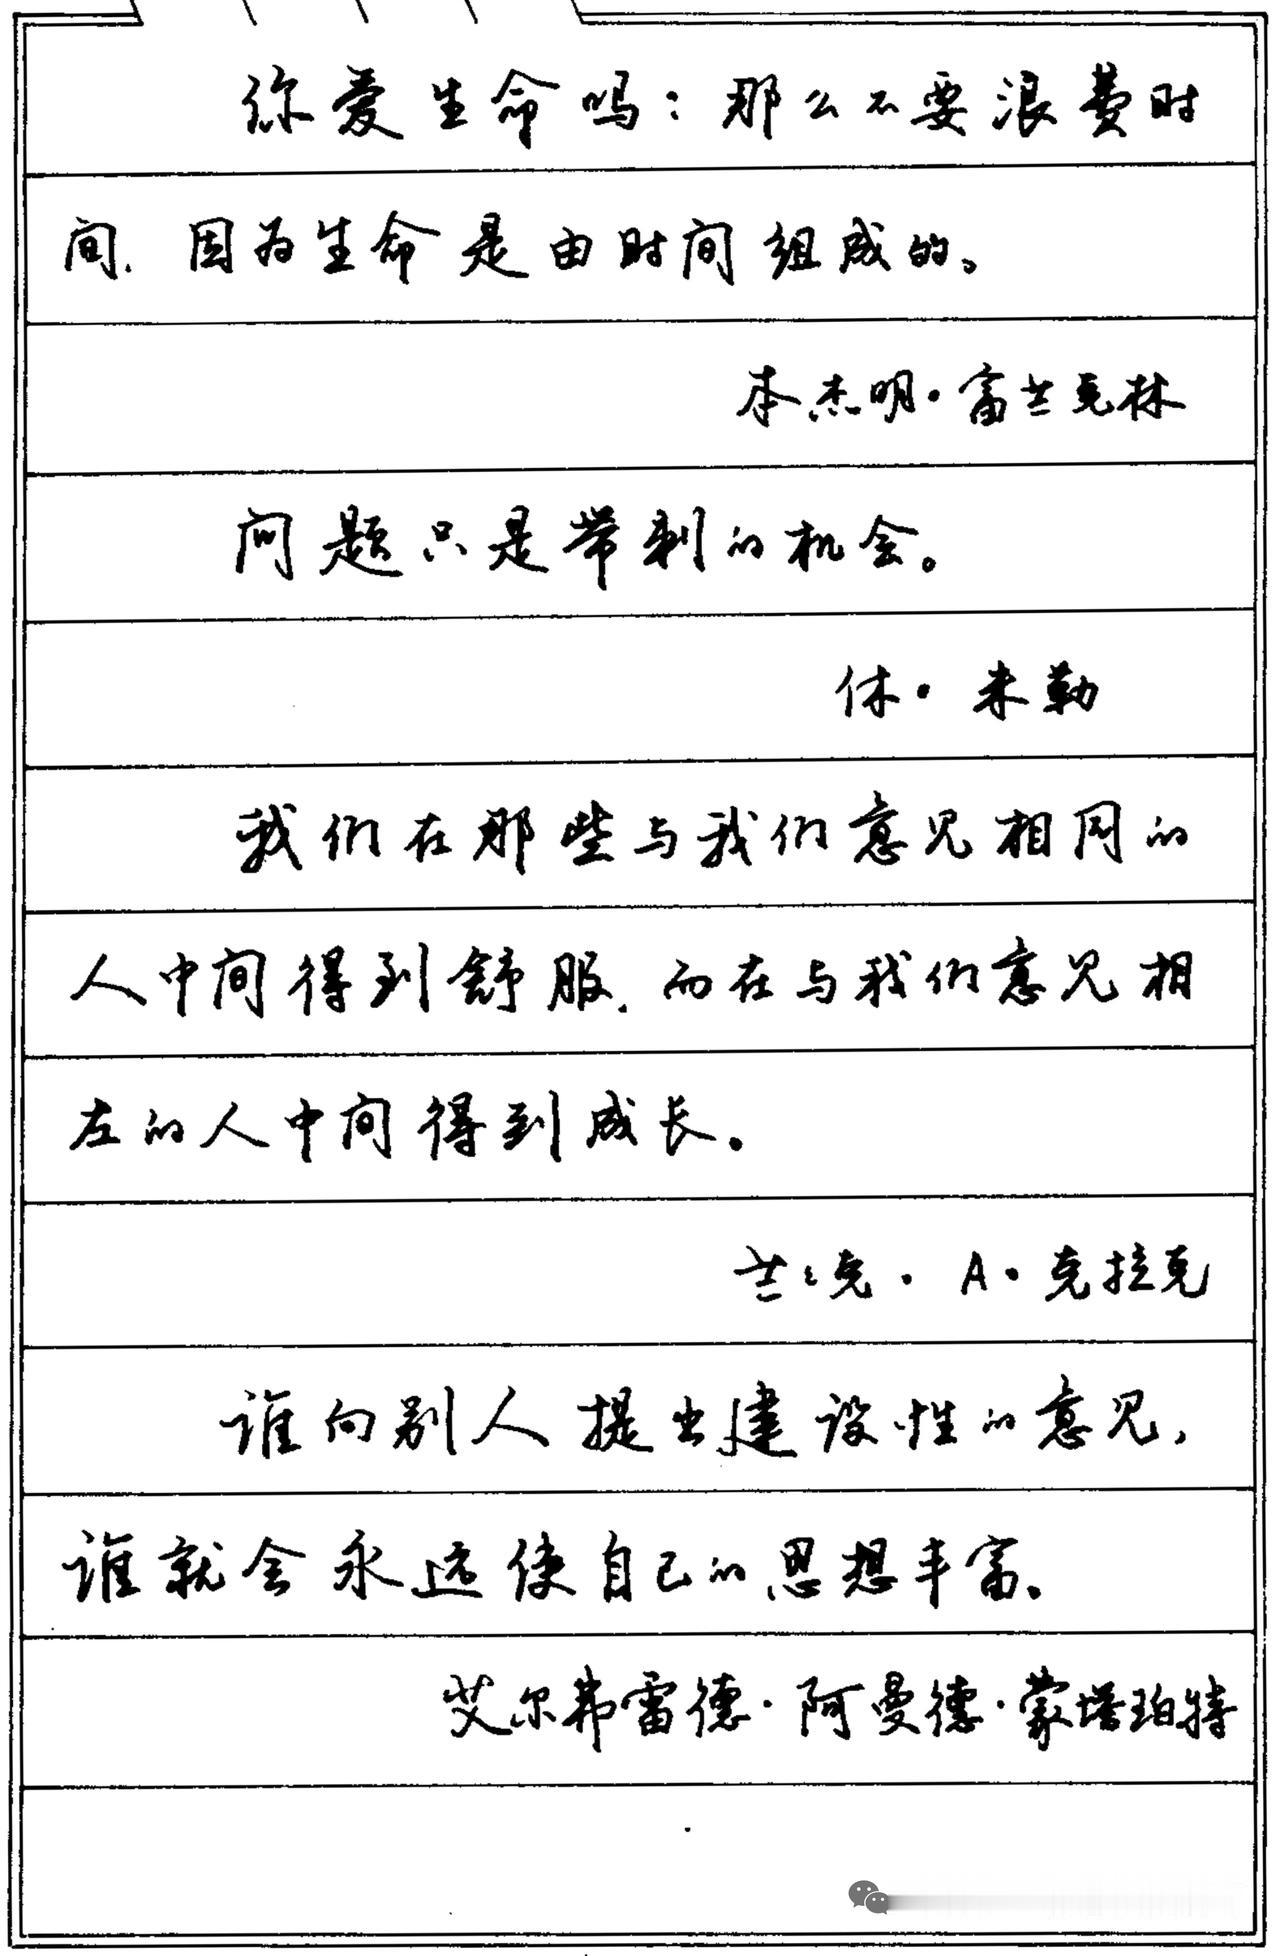 你爱生命吗：那么不要浪费时
间．因为生命是由时间组成的。
本杰明·富兰克林
问题只是带刺的机会。
休·米勒
我们在那些与我们意见相同的
人中间得到舒服．而在与我们意见相
左的人中间得到成长。
兰兰克·A·克拉克
谁向别人提出建设性的意见，
谁就会永远使自己的思想丰富。
艾尔弗雷德·阿曼德·蒙塔珀特